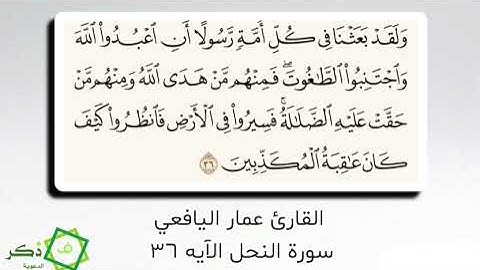 وَلَقَدْ بَعَثْنَا فِي كُلِّ أُمَّةٍ رَّسُولًا أَنِ ٱعْبُدُوا۟ ٱللَّهَ
وَٱجْتَنِبُوا۟ ٱلطَّـٰغُوتَ ۖ فَمِنْهُم مَّنْ هَدَى ٱللَّهُ وَمِنْهُم مَّنْ
حَقَّتْ عَلَيْهِ ٱلضَّلَـٰلَةُ ۚ فَسِيرُوا۟ فِي ٱلْأَرْضِ فَٱنظُرُوا۟ كَيْفَ
كَانَ عَـٰقِبَةُ ٱلْمُكَذِّبِينَ ٣٦
القارئ عمار اليافعي
سورة النحل الآيه ٣٦
ذكر
الدعوية